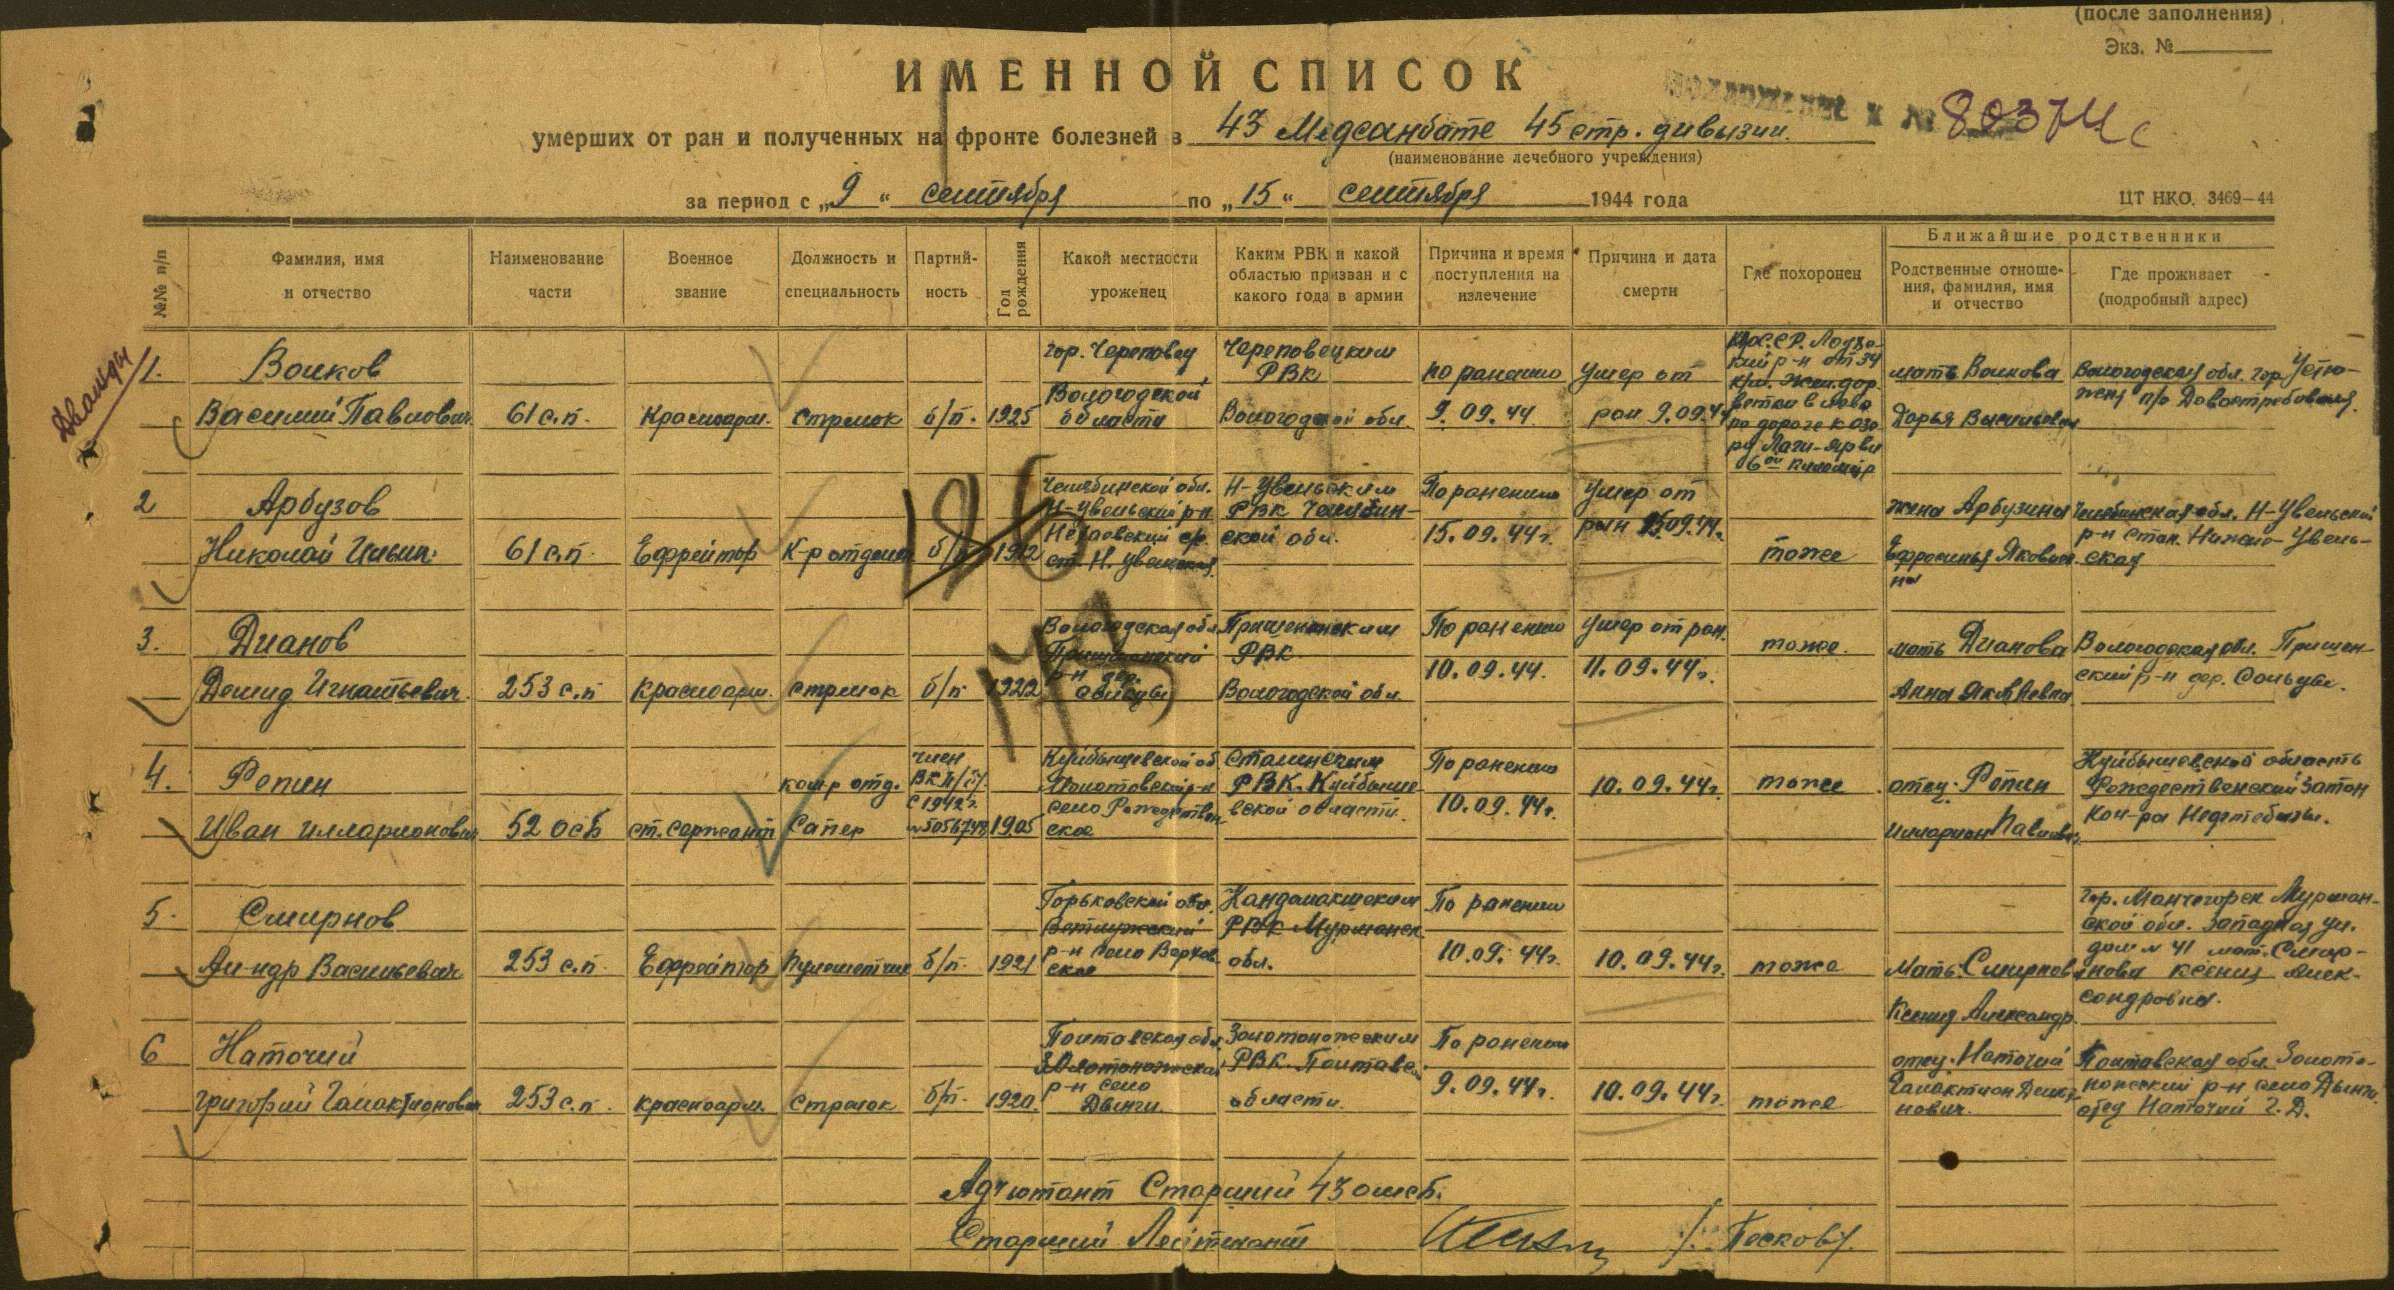 (после заполнения)
Экз. №
ИМЕННОЙ СПИСОК
80374 с
умерших от ран и полученных на фронте болезней в 43 Медсанбате 45 стр. дивизии.
(наименование лечебного учреждения)
за период с „9“ сентября по „15“ сентября 1944 года
ЦТ НКО. 3469—44
№№ п/п
Фамилия, имя и отчество
Наименование части
Военное звание
Должность и специальность
Партийность
Год рождения
Какой местности уроженец
Каким РВК и какой областью призван и с какого года в армии
Причина и время поступления на излечение
Причина и дата смерти
Где похоронен
Ближайшие родственники
Родственные отношения, фамилия, имя и отчество
Где проживает (подробный адрес)
1. Волков
Василий Павлович
61 с.п.
Красноарм.
стрелок
б/п.
1925
гор. Череповец
Вологодской
области
Череповецким
РВК
Вологодской обл.
по ранению
9.09.44
Умер от
ран 9.09.44
К.Ф.ССР. Лоухский р-н от 34
км. жел. дор.
ветки влево
по дороге к озеру
6ой километр
мать Волкова
Дарья Васильевна
Вологодская обл. гор. Устюжна п/о Довостребования.
2 Арбузов
Николай Ильич
61 с.п.
Ефрейтор
К-р отделен
б/п
1912
Челябинской обл.
Н-Увельский р-н
ст. Н. Увельская
Н-Увельским
РВК Челябинской обл.
По ранению
15.09.44г.
Умер от
ран 15.09.44г.
тоже
жена Арбузина
Ефросинья Яковлевна
Челябинская обл. Н-Увельский
р-н стан. Нижно-Увельская
126
173
3. Дианов
Демид Игнатьевич.
253 с.п
Красноарм.
стрелок
б/п
1922
Вологодская обл.
р-н дер.
Пришекснским
РВК
Вологодской обл.
По ранению
10.09.44.
Умер от ран.
11.09.44г.
тоже.
мать Дианова
Анна
Вологодская обл. Пришекнский р-н дер.
4. Репин
Иван Илларионович
52 осб
ст. сержант
ком-р отд.
Сапер
член
ВКП/б/
с 1942г.
1905
Куйбышевской об
село Рождественское
Сталинским
РВК. Куйбышевской области.
По ранению
10.09.44г.
10.09.44г.
тоже
отец: Репин
Илларион Павлович
Куйбышевской область
Рождественский Затон
Кон-ра Нефтебазы.
5. Смирнов
Ал-ндр Васильевич
253 с.п.
Ефрейтор
Пулеметчик
б/п.
1921
Горьковской обл.
Ветлужский
р-н село
Кандалакшским
РВК Мурманск
обл.
По ранению
10.09.44г.
10.09.44г.
тоже
Мать: Смирнова
Ксения Александр.
гор. Мончегорск Мурманской обл. Западная ул.
дом № 41 мат. Смирнова Ксения Александровна.
6 Наточий
Григорий Галактионович
253 с.п.
красноарм.
Стрелок
б/п.
1920.
Полтавская обл.
Золотоношский
р-н село
Двинги.
Золотоношским
РВК. Полтавской
области.
По ранению
9.09.44г.
10.09.44г.
тоже
отец. Наточий
Галактион
Полтавская обл. Золотоношский р-н село
отец Наточий Г. Д.
Адъютант Старший 43 омсб.
Старший Лейтенант
/. Песков/.